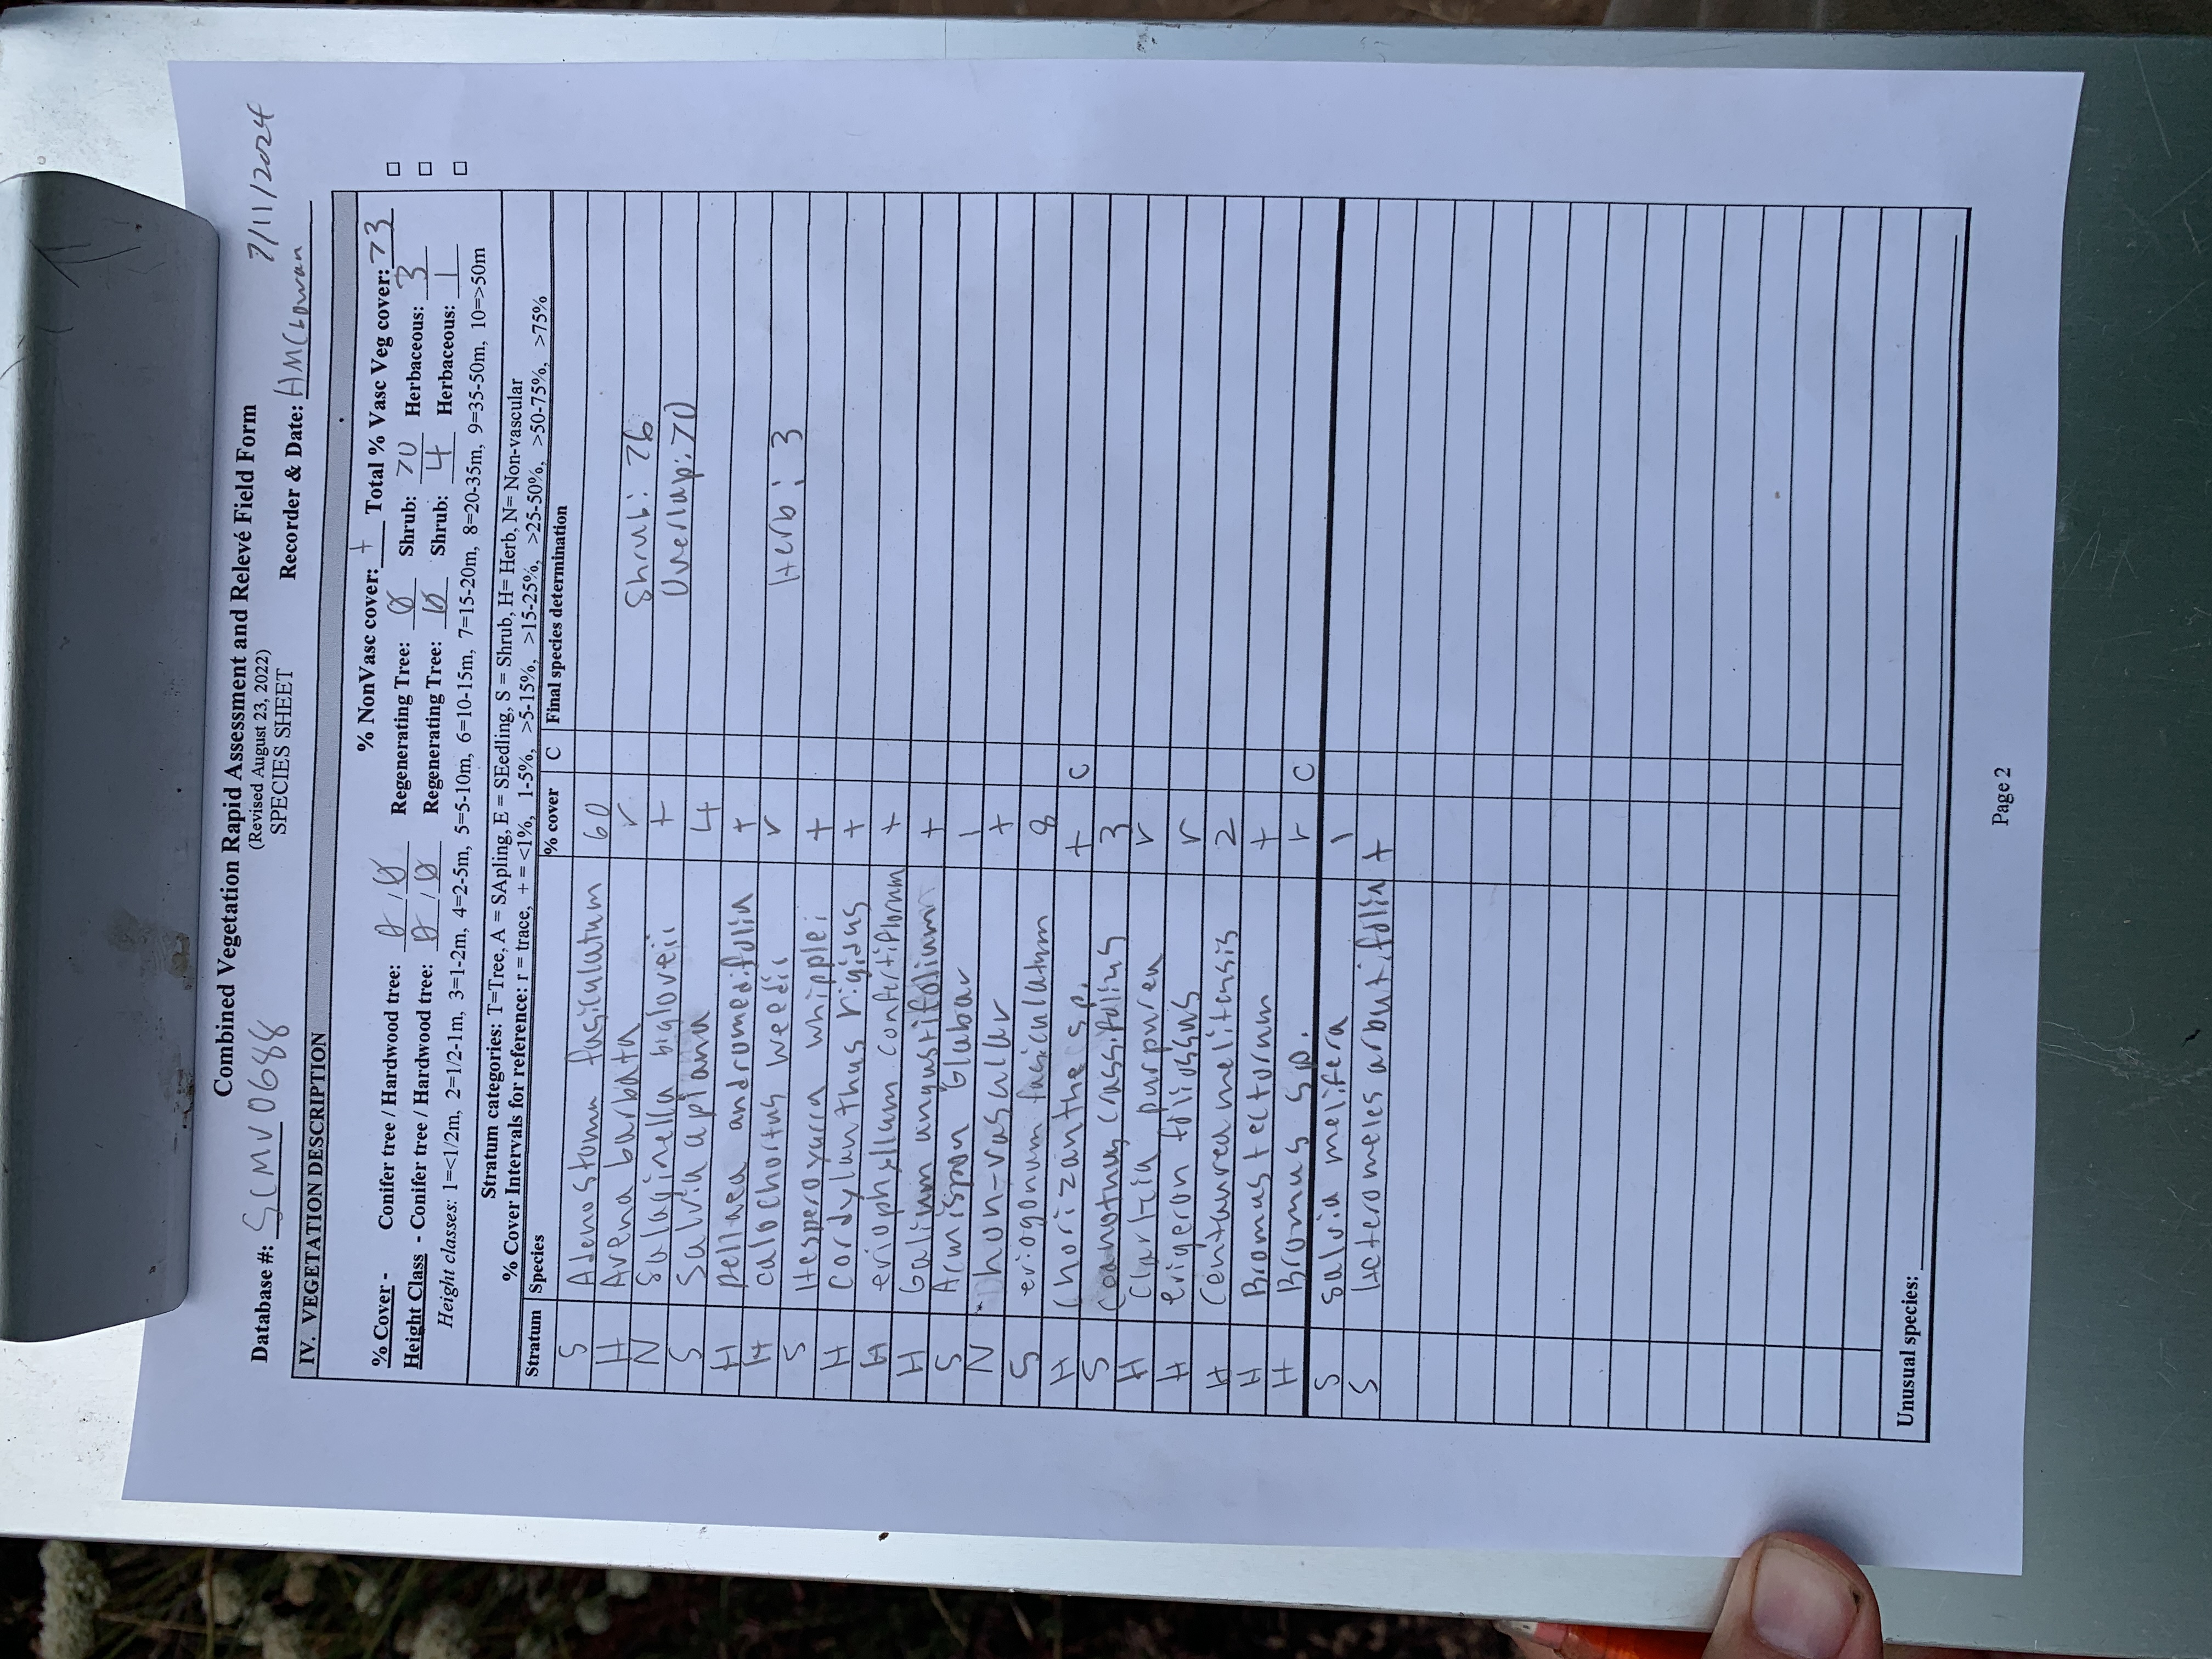 Combined Vegetation Rapid Assessment and Relevé Field Form
(Revised August 23, 2022)
SPECIES SHEET
7/11/2024
Database #: SCMV0688 Recorder & Date: HMCGowan
IV. VEGETATION DESCRIPTION
% NonVasc cover: + Total % Vasc Veg cover: 73
% Cover - Conifer tree / Hardwood tree: Ø / Ø Regenerating Tree: Ø Shrub: 70 Herbaceous: 3
Height Class - Conifer tree / Hardwood tree: Ø / Ø Regenerating Tree: Ø Shrub: 4 Herbaceous: 1
Height classes: 1=<1/2m, 2=1/2-1m, 3=1-2m, 4=2-5m, 5=5-10m, 6=10-15m, 7=15-20m, 8=20-35m, 9=35-50m, 10=>50m
Stratum categories: T=Tree, A = SApling, E = SEedling, S = Shrub, H= Herb, N= Non-vascular
% Cover Intervals for reference: r = trace, + = <1%, 1-5%, >5-15%, >15-25%, >25-50%, >50-75%, >75%
Stratum Species % cover C Final species determination
S Adenostoma fasiculatum 60
H Avena barbata r Shrub: 76
N Selaginella bigloveii + Overlap: 70
S Salvia apiana 4
H pellaea andromedifolia +
H calochortus weedii r Herb: 3
S Hesperoyucca whipplei +
H Cordylanthus rigidus +
H eriophyllum confertiflorum +
H Galium angustifolium +
S Acmispon Glabar 1
N non-vascular +
S eriogonum fasiculatum 8
H Chorizanthe sp. + C
S Ceanothus crassifolius 3
H Clarkia purpurea r
H erigeron foliosus r
H Centaurea melitensis 2
H Bromus tectorum +
H Bromus sp. r C
S salvia melifera 1
S Heteromeles arbutifolia +
Unusual species:
Page 2